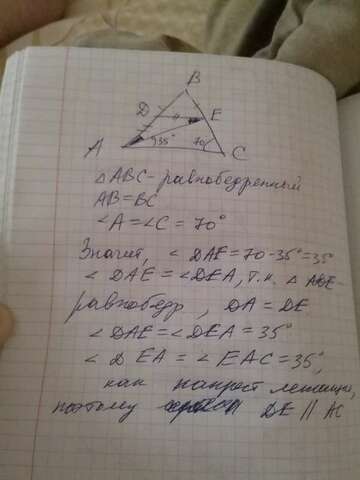 B
D E
A 35° 70° C
△ABC - равнобедренный
AB = BC
∠A = ∠C = 70°
Значит, ∠DAE = 70 - 35° = 35°
∠DAE = ∠DEA, т.к. △ADE -
равнобедр, DA = DE
∠DAE = ∠DEA = 35°
∠DEA = ∠EAC = 35°,
как напрест лежащие,
поэтому DE || AC